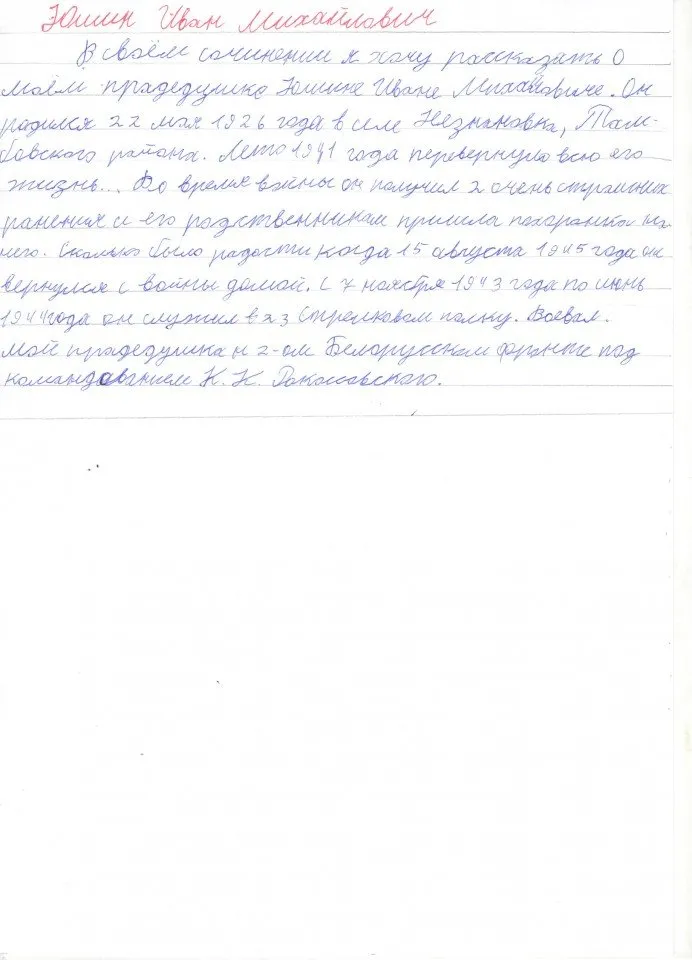 Юшин Иван Михайлович
В своём сочинении я хочу рассказать о
моём прадедушке Юшине Иване Михайловиче. Он
родился 22 мая 1926 года в селе Незнановка, Там-
бовского района. Лето 1941 года перевернуло всю его
жизнь... Во время войны он получил 2 очень страшних
ранения и его родственникам пришла похоронка на
него. Сколько было радости когда 15 августа 1945 года он
вернулся с войны домой. С 7 ноября 1943 года по июнь
1944 года он служил в 23 стрелковом полку. Воевал.
мой прадедушка н 2-ом Белорусском фронте под
командованием К. К. Рокоссовского.